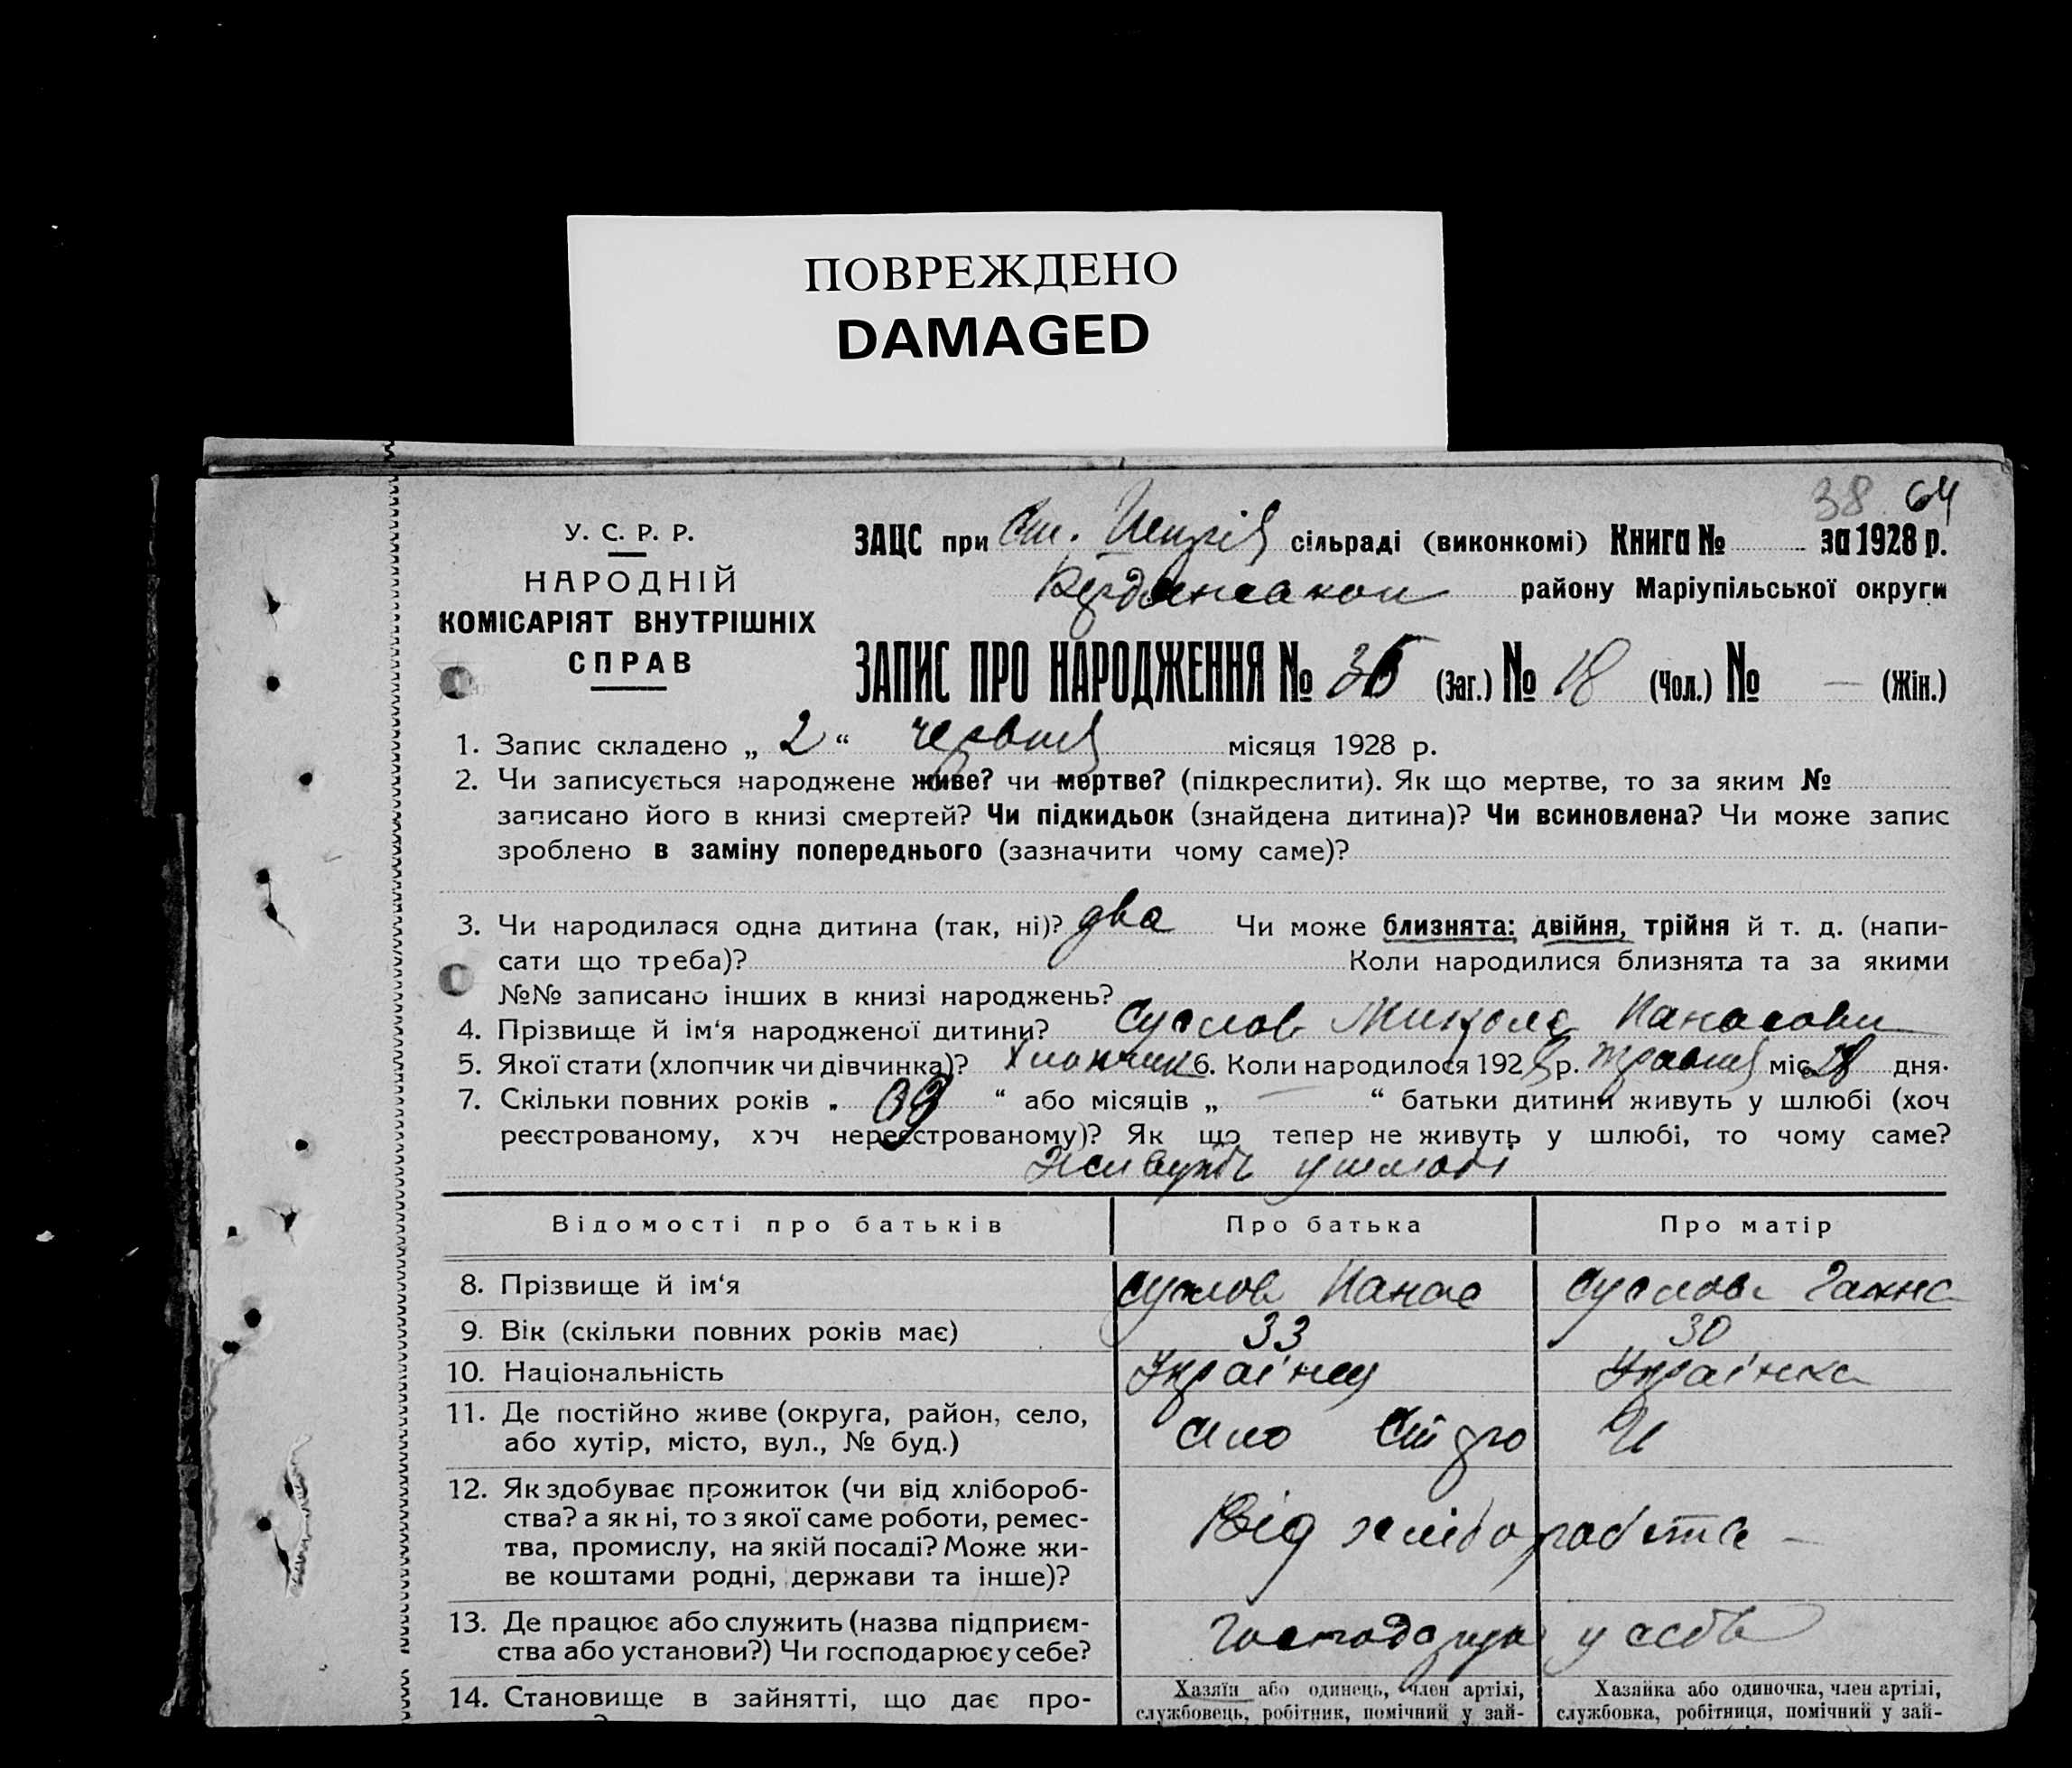 ПОВРЕЖДЕНО
DAMAGED
38 64
У. С. Р. Р.
НАРОДНІЙ
КОМІСАРІЯТ ВНУТРІШНІХ
СПРАВ
ЗАЦС при Ст. сільраді (виконкомі) Книга № за 1928 р.
району Маріупільської округи
ЗАПИС ПРО НАРОДЖЕННЯ № 36 (Заг.) № 18 (Чол.) № — (Жін.)
1. Запис складено „ 2 “ червня місяця 1928 р.
2. Чи записується народжене живе? чи мертве? (підкреслити). Як що мертве, то за яким №
записано його в книзі смертей? Чи підкидьок (знайдена дитина)? Чи всиновлена? Чи може запис
зроблено в заміну попереднього (зазначити чому саме)?
3. Чи народилася одна дитина (так, ні)? два Чи може близнята: двійня, трійня й т. д. (напи-
сати що треба)? Коли народилися близнята та за якими
№№ записано інших в книзі народжень?
4. Прізвище й ім‘я народженої дитини? Суслов Микола Панасови
5. Якої стати (хлопчик чи дівчинка)? Хлопчик 6. Коли народилося 1928 р. травня міс. 28 дня.
7. Скільки повних років „ 09 “ або місяців „ — “ батьки дитини живуть у шлюбі (хоч
реєстрованому, хоч нереєстрованому)? Як що тепер не живуть у шлюбі, то чому саме?
Живуть у шлюбі
Відомості про батьків Про батька Про матір
8. Прізвище й ім‘я Суслов Панас Суслова Ганна
9. Вік (скільки повних років має) 33 30
10. Національність Українец Українка
11. Де постійно живе (округа, район, село,
або хутір, місто, вул., № буд.) село
12. Як здобуває прожиток (чи від хлібороб-
ства? а як ні, то з якої саме роботи, ремес-
тва, промислу, на якій посаді? Може жи-
ве коштами родні, держави та інше)?
Від хліборобства —
13. Де працює або служить (назва підприєм-
ства або установи?) Чи господарює у себе?
Господарює у себе
14. Становище в зайнятті, що дає про-
Хазяїн або одинець, член артілі,
службовець, робітник, помічний у зай-
Хазяйка або одиночка, член артілі,
службовка, робітниця, помічний у зай-